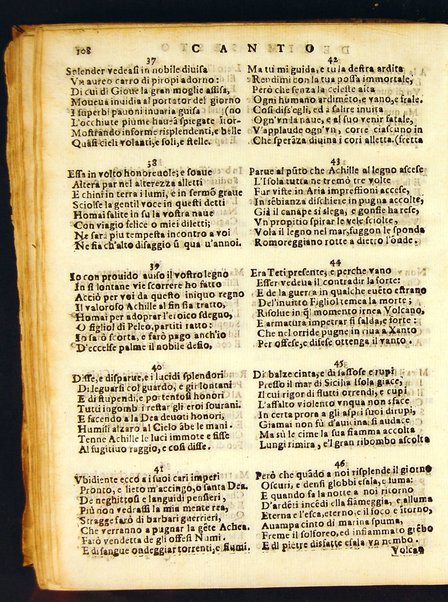 108
CANTO
37
Splender vedeasi in nobile diuisa
Vn aureo carro di piropi adorno:
Di cui di Gioue la gran moglie assisa,
Moueua inuidia al portator del giorno
I superbi pauoni inuaria guisa
L'occhiute piume hauea spiegate itor
Mostrando informe risplendenti, e belle
Quasi cieli volati, e soli, e stelle.
38
Essa in volto honoreuole; e soaue
Altera par nel alterezza alletti
E chini in terra i lumi, e in sermõ graue
Sciolse la gentil voce in questi detti
Homai salite in su la vostra naue
Con viagio felice o miei diletti;
Ne sarà piu tempesta incontro a voi
Ne fia ch'alto disaggio si qua u'annoi.
39
Io con prouido auiso il vostro legno
In sì lontane vie scorrere ho fatto
Acciò per voi da questo iniquo regno
Il valoroso Achille al fin sia tratto,
Homai per adoprar l'eroico sdegno,
O figliol di Peleo, partiti ratto:
Io sarò scorta, e farò pago anch'io
D'eccelse palme il nobile desio,
40
Disse, e disparue, e i lucidi splendori
Di leguarsi col guardo, e gir lontani
E di stupendi, e portentosi honori
Tutti ingombrà restar gli eroi sourani.
E facendo a la Dea deuoti honori,
Humili alzaro al Cielo ābe le mani.
Tenne Achille le luci immote e fisse
Al fugitiuo raggio, e così disse.
41
Vbidiente ecco a i suoi cari imperi
Pronto, e lieto m'accingo, o santa Dea.
De neghittosi e languidi pensieri,
Più non vedrassi la mia mente rea,
Stragge sarò di barbari guerrieri,
Che verranno a pugnar la gēte Achea.
Farò vendetta de gli offesi Numi.
E di sangue ondeggiar torrenti, e fiumi.
42
Ma tu mi guida, e tu la destra ardita
Rendimi con la tua possa immortale,
Però che senza la celeste aita
Ogni humano ardimēto, e vano, e frale.
Così dissegli, e la sua naue addita
Ogn'vn la naue, e al suo venir fatale,
V'applaude ogn'vn, corre ciascuno in
Che sperāza diuina i cori alletta, (fretta
43
Parue al pūto che Achille al legno ascese
L'Isola tutta ne tremò tre volte
Fur viste in Aria impressioni accese,
In sēbianza dischiere in pugna accolte,
Già il canape si slega, e gonfie ha rese,
Vn propitio spirar le vele sciolte,
Vola il legno nel mar, suggon le sponda
Romoreggiano rotte a dietro l'onde.
44
Era Teti presente, e perche vano
Esser vedeua il contradir la sorte:
E de la guerra in qualche euēto estrano
Del'inuitto Figliol temea la morte;
Risolue in q̃l momento irnea Volcano,
E armatura impetrar si salda, e forte:
Che nel orride pugne in riua a Xanto
Per offese, e difese ottenga il vanto.
45
Di balze cinta, e di sassose e rupi
Presso il mar di Sicilia Isola giace,
Il cui rigor di flutti orrendi, e cupi
L'assalto violento vnqua non sface
In certa prora a gli aspri suoi dirupi,
Giamai non fù d'auicinarsi audace
Ma sù le cime la sua fiamma accolta
Lungi rimira, e'l gran ribombo ascolta
46
Però che quādo a noi risplende il giorno
Oscuri, e densi globbi esala, e luma:
E quando fa la notte a noi ritorno
D'ardēti incēdi ella fiāmeggia, e alluma
Eterna e l'esca, eterno, e il foco e itorno,
Auampa cinto di marina spuma,
Freme il solforeo, ed infiammato grēbo
E di pietre disfatte esala vn nembo.
Volcan